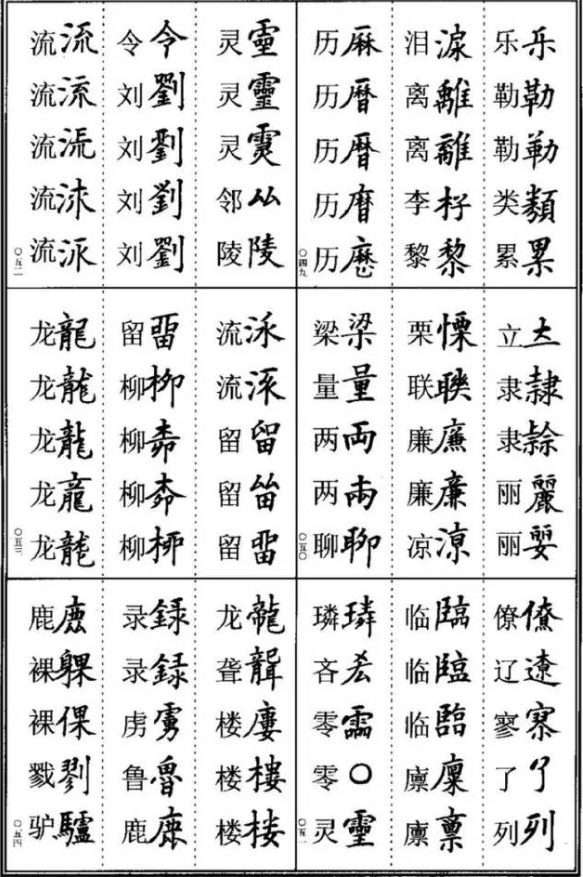 乐乐
勒勒
勒勒
类類
累累
泪淚
离離
离離
李杍
黎黎
历厤
历暦
历暦
历
历
〇四九
立
隶隸
隶
丽麗
丽
栗慄
联聫
廉廉
廉廉
凉凉
梁梁
量量
两両
两両
聊聊
〇五〇
僚僚
辽遼
寥寥
了了
列列
临臨
临臨
临臨
廪廩
廪稟
璘璘
吝
零霝
零〇
灵霊
〇五一
灵靈
灵靈
灵
邻厸
陵陵
令令
刘劉
刘劉
刘劉
刘劉
流流
流流
流
流
流
〇五二
流
流
留留
留
留畱
留畱
柳柳
柳
柳
柳桺
龙龍
龙龍
龙龍
龙龍
龙龍
〇五三
龙龍
聋聾
楼廔
楼樓
楼楼
录録
录録
虏虜
鲁魯
鹿鹿
鹿鹿
裸躶
裸倮
戮剹
驴驢
〇五四